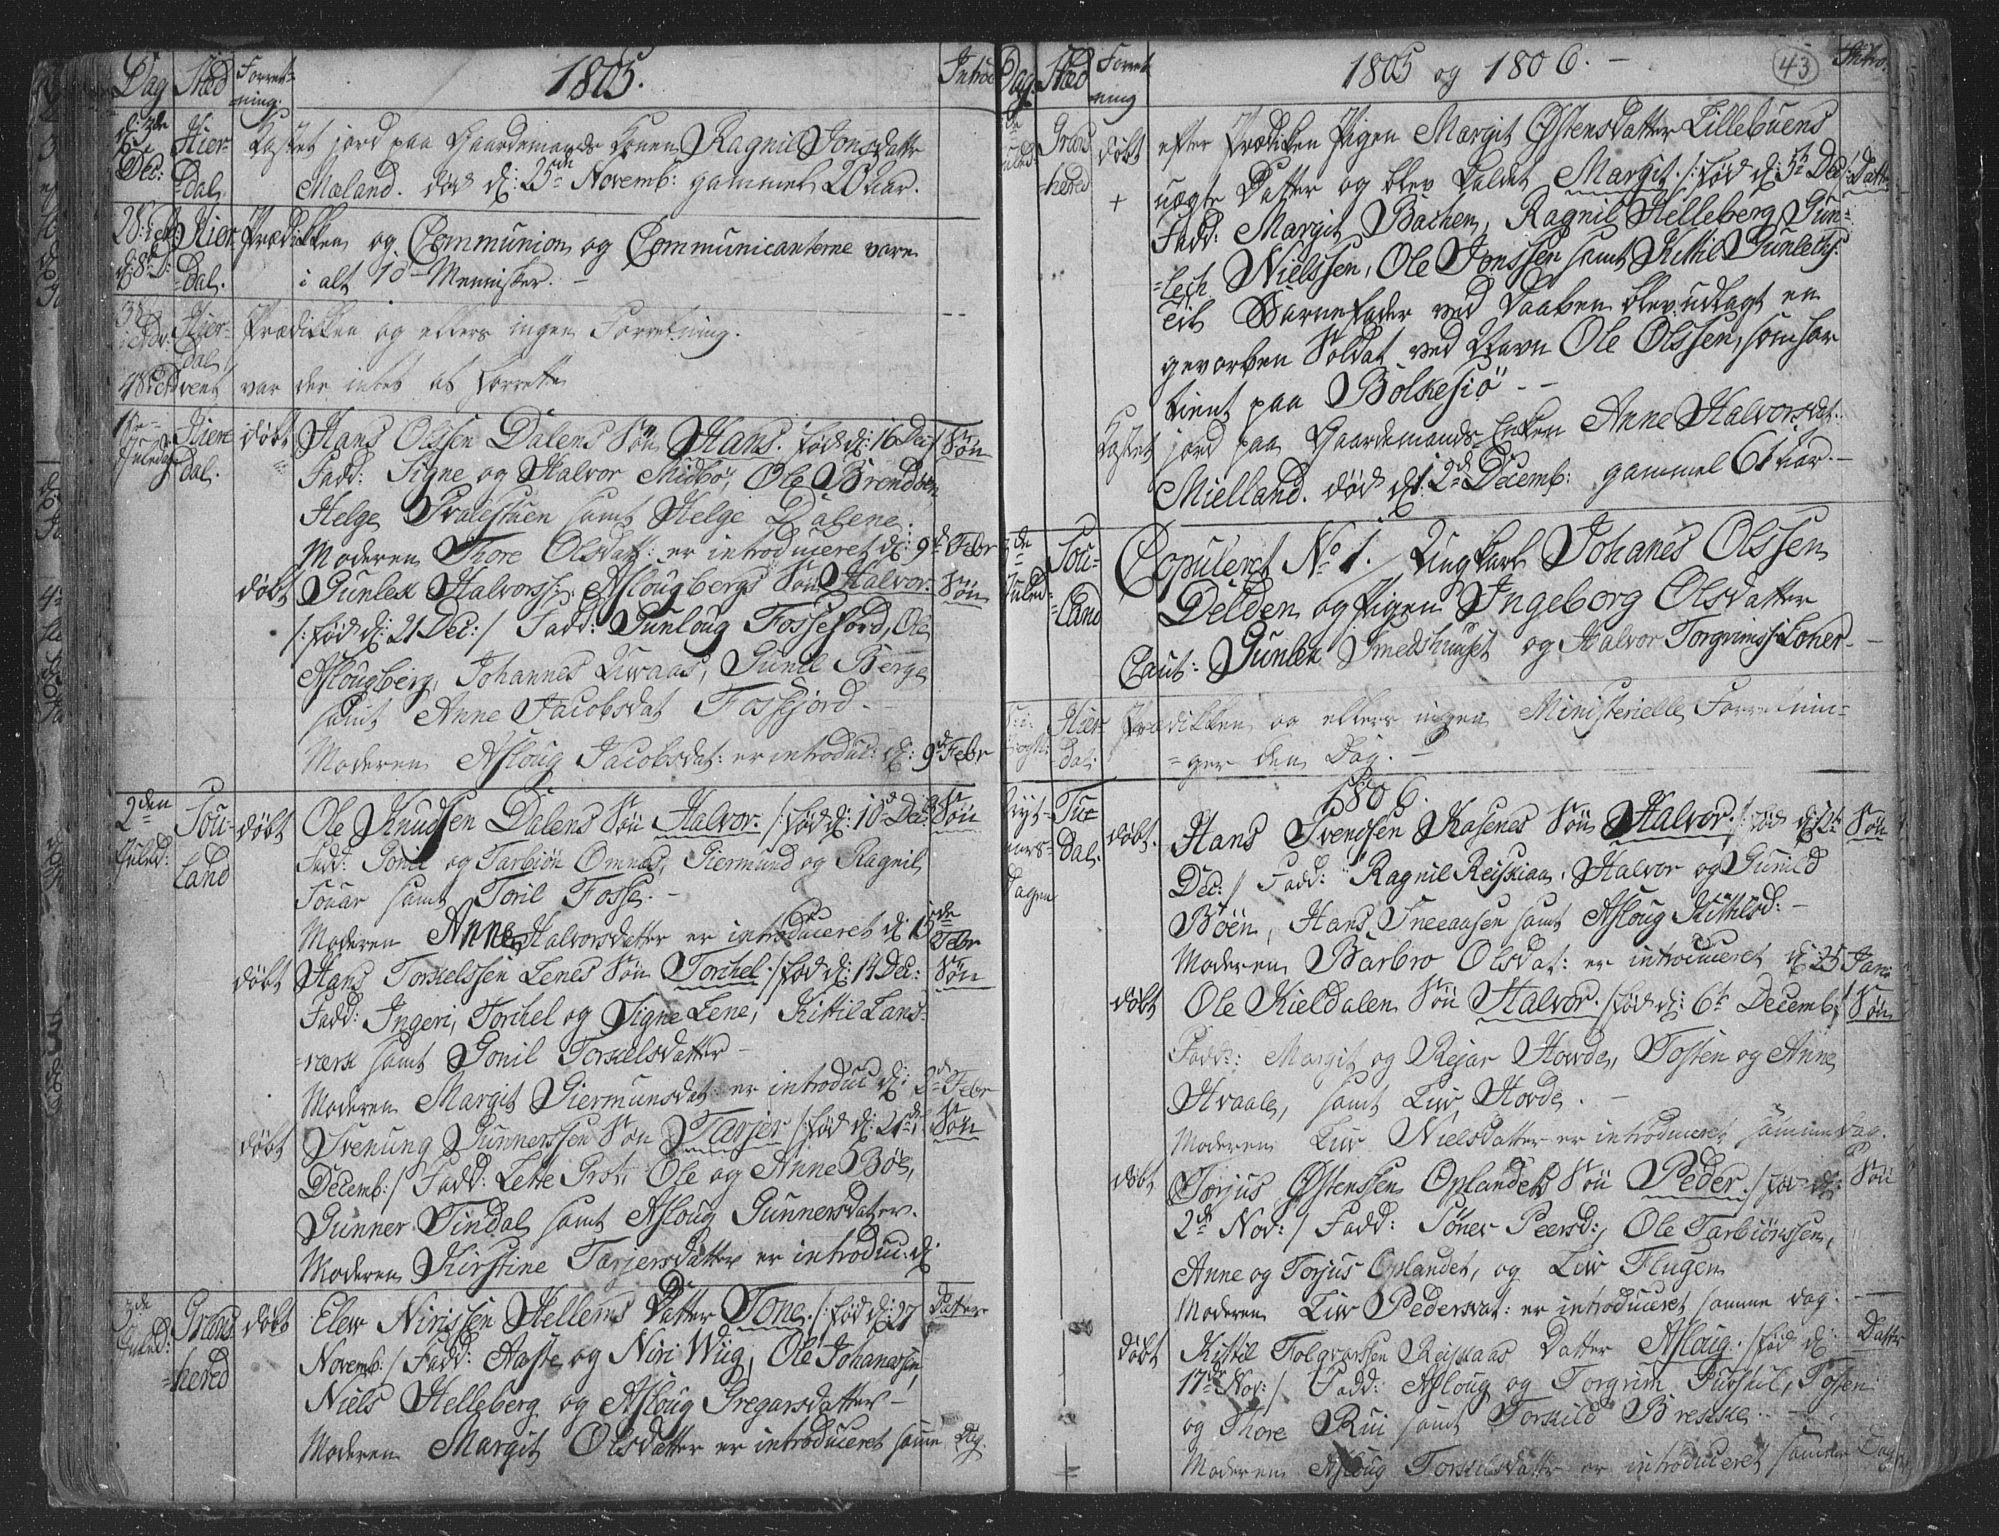 Dag Sted Forret-ning. 1805. Introd
Hier-dal
Kastet jord paa Gaardemands Konen Ragnil Jonsdatter
Mæland. død d: 25de Novemb: gammel 20 aar.
Hier-dal. Prædikken og Communion og Communicanterne vare
i alt 10 Mennisker.
Hier-dal Prædikken og ellers ingen Forretning.
4 S: Advent var der intet at forrette
Hier-dal. døbt Hans Olssen Dalens Søn Hans. født d: 16 Dec: Søn
Fadd: Signe og Halvor Midbø, Ole Brendøen
Helge Svalestuen samt Helge Dalene.
Moderen Thore Olsdatt: er introduceret d: 9de Febr
døbt Gunlek Halvorss: Aslougbergs Søn Halvor. Søn
/: født d: 21 Dec: / Fadd: Gunloug Fossefiord, Ole
Aslougberg, Johannes Kwaas, Gunil Berge
samt Anne Jacobsdat Fossefiord.
Moderen Asloug Jacobsdat: er introdu: d: 9de Febr
2den Juled: Sou-land døbt Ole Knudsen Dalens Søn Halvor. /: født d: 10de Dec: Søn
Fadd: Gonil og Tarbiøn Omnes, Giermund og Ragnil
Souar samt Toril Fosse.
Moderen Anne Halvorsdatter er introduceret d: 15de Febr
døbt Hans Torkelssen Lenes Søn Torchel. /: født d: 14 Dec: Søn
Fadd: Ingeri, Torchel og Signe Lene, Kittil Lans-
værk samt Gonil Torkelsdatter
Moderen Margit Giermunsdat: er introdu d: 3de Febr
døbt Svenung Gunnerssen Søn Tarjer /: født d: 21de Søn
Decemb: / Fadd: Lette Grot, Ole og Anne Bøe,
Gunner Tindal samt Asloug Gunnersdatter.
Moderen Kirstine Tarjersdatter er introdu: d:
3de Juled: Grans-hered døbt Elew Nirissen Hellems Datter Tone. /: født d: 27 Datter
Novemb: / Fadd: Aaste og Niri Wiig, Ole Johanessen,
Niels Helleberg og Asloug Gregarsdatter
Moderen Margit Olsdatter er introduceret samme Dag.
Dag Sted Forret-ning 1805 og 1806. 43 Intro.
Grans-hered døbt efter Prædiken Pigen Margit Østensdatter Lillebuens
uægte Datter og blev kaldet Margit. /: født d: 5te Dec: Datter
Fadd: Margit Bachen, Ragnil Helleberg, Gun-
lech Nielssen, Ole Jonssen samt Kittil Gunlechs:
Til Barnefader ved Daaben blev udlagt en
gevorben Soldat ved Navn Ole Olssen, som har
tient paa Bolkesiø
Kastet jord paa Gaardemands-Enken Anne Halvorsdat:
Mielland. død d: 2de Decemb: gammel 61 aar.
Juled: Sou-land Copuleret No 1. Ungkarl Johanes Olssen
Delden og Pigen Ingeborg Olsdatter
Caut: Gunlek Smedshuuset og Halvor Torgrimss: Loner
Hier-dal: Prædikken og ellers ingen Ministerielle Forretnin-
ger den Dag.
1806.
Nyt-aars-Dagen Tu-dal. døbt. Hans Svendsen Kasenes Søn Halvor. /: født d: Søn
Dec: / Fadd: Ragnil Reiskaas, Halvor og Gunild
Bøen, Hans Sneaasen samt Asloug Kittilsd:
Moderen Barbro Olsdat: er introduceret d: 25 Jan:
døbt Ole Kieldalen Søn Halvor. /: født d: 6te Decemb: Søn
Fadd: Margit og Rejar Howde, Tosten og Anne
Hvaale, samt Liw Hovde.
Moderen Liw Nielsdatter er introduceret samme Dag.
døbt Torjus Østenssen Oplandets Søn Peder. /: født d: Søn
2de Nov: / Fadd: Søner Peersd:, Ole Tarbiønssen,
Anne og Torjus Oplandet, og Liw Flugen
Moderen Liw Pedersdat: er introduceret samme dag.
døbt Kittil Folqvarssen Reiskaas Datter Asloug. /: født d: Datter
17de Nov: / Fadd: Asloug og Torgrim Gurskil, Tosten
og Thore Rui samt Torkild Brekke.
Moderen Asloug Torkelsdatter er introduceret samme Dag